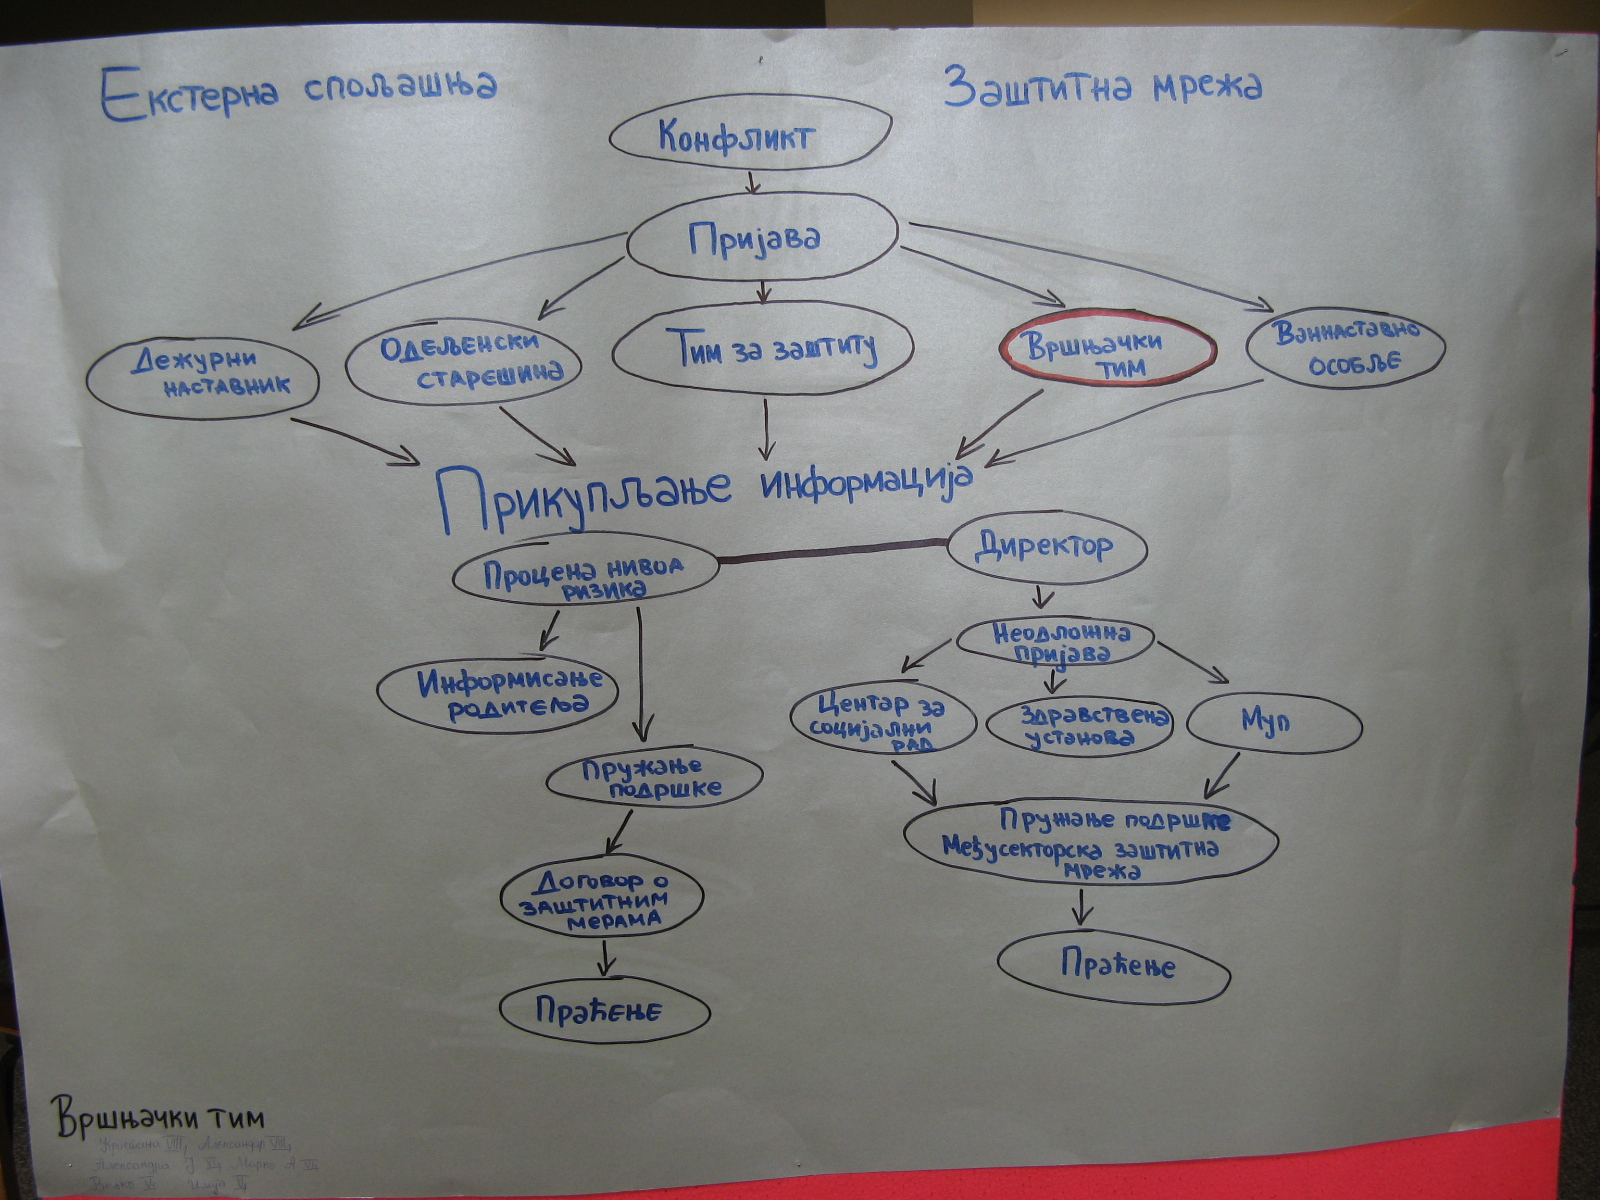 Екстерна спољашња Заштитна мрежа
Конфликт
Пријава
Дежурни
наставник
Одељенски
старешина
Тим за заштиту
Вршњачки
тим
Ваннаставно
особље
Прикупљање информација
Процена нивоа
ризика
Директор
Неодложна
пријава
Информисање
родитеља
Центар за
социјални
рад
Здравствена
установа
Муп
Пружање
подршке
Пружање подршке
Међусекторска заштитна
мрежа
Договор о
заштитним
мерама
Праћење
Праћење
Вршњачки тим
Александар VIII
Александра J. VI Марко А VI